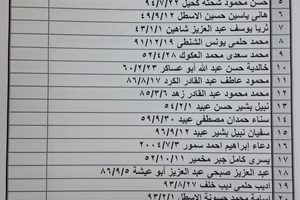 ٥ حسن محمود شحته كحيل ٩٤/٧/٢٢
٦ هاني ياسين حسين الاسطل ٤٩/٩/١٢
٧ ثريا يوسف عبد العزيز شاهين ٤٣/١/١
٨ محمد حلمي يونس الشنطي ٩١/١٢/١٩
٩ محمد سعدي محمد العكوك ٥٢/٩/٤
١٠ خالدية حسن عبد الله أبو عساكر ٦٠/٢/٢٣
١١ محمود عاطف عبد القادر الكرد ٨٦/٨/١٧
١٢ محمود محمد عبد القادر زهد ٨٥/٣/٦
١٣ نبيل بشير حسن عبيد ٥٤/٢/١
١٤ سناء حمدان مصطفى عبيد ٥٩/٩/٣٠
١٥ سفيان نبيل بشير عبيد ٩٦/٩/١٢
١٦ دعاء إبراهيم أحمد سمور ٢٠٠٤/٧/٣
١٧ يسرى كامل جبر مخمير ٥٢/١٠/١١
١٨ عبد العزيز صبحي عبد العزيز أبو عيشة ٨٦/٩/٥
١٩ أديب حلمي ديب خلف ٩٣/٨/٢٧
٢٠ أسامة محمد حسونة الاسطل ٩٣/٢/١